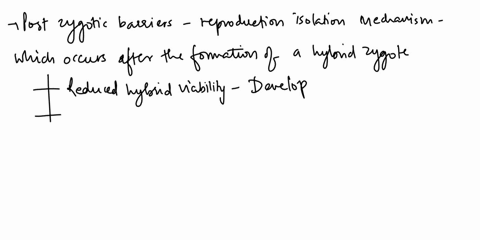 → Post zygotic barriers - reproduction isolation mechanism -
which occurs after the formation of a hybrid zygote
Reduced hybrid viability - Develop